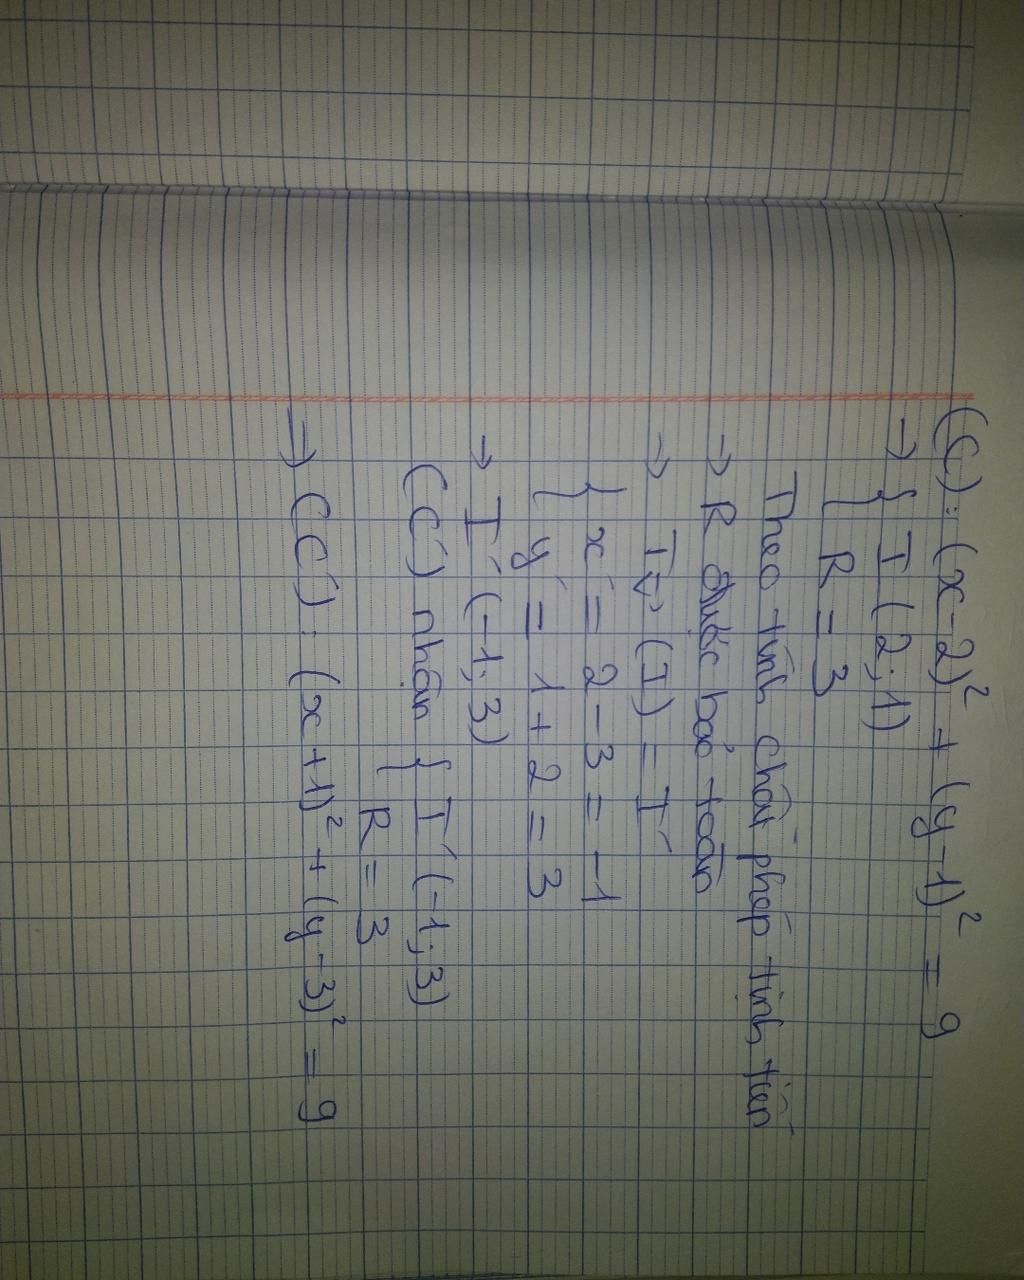 (C): (x-2)² + (y-1)² = 9
→ { I (2;1)
{ R = 3
Theo tính chất phép tịnh tiến
→ R được bảo toàn
→ Tv⃗ (I) = I'
{ x' = 2 - 3 = -1
{ y' = 1 + 2 = 3
→ I' (-1;3)
(C') nhận { I' (-1;3)
{ R = 3
→ (C'): (x+1)² + (y-3)² = 9